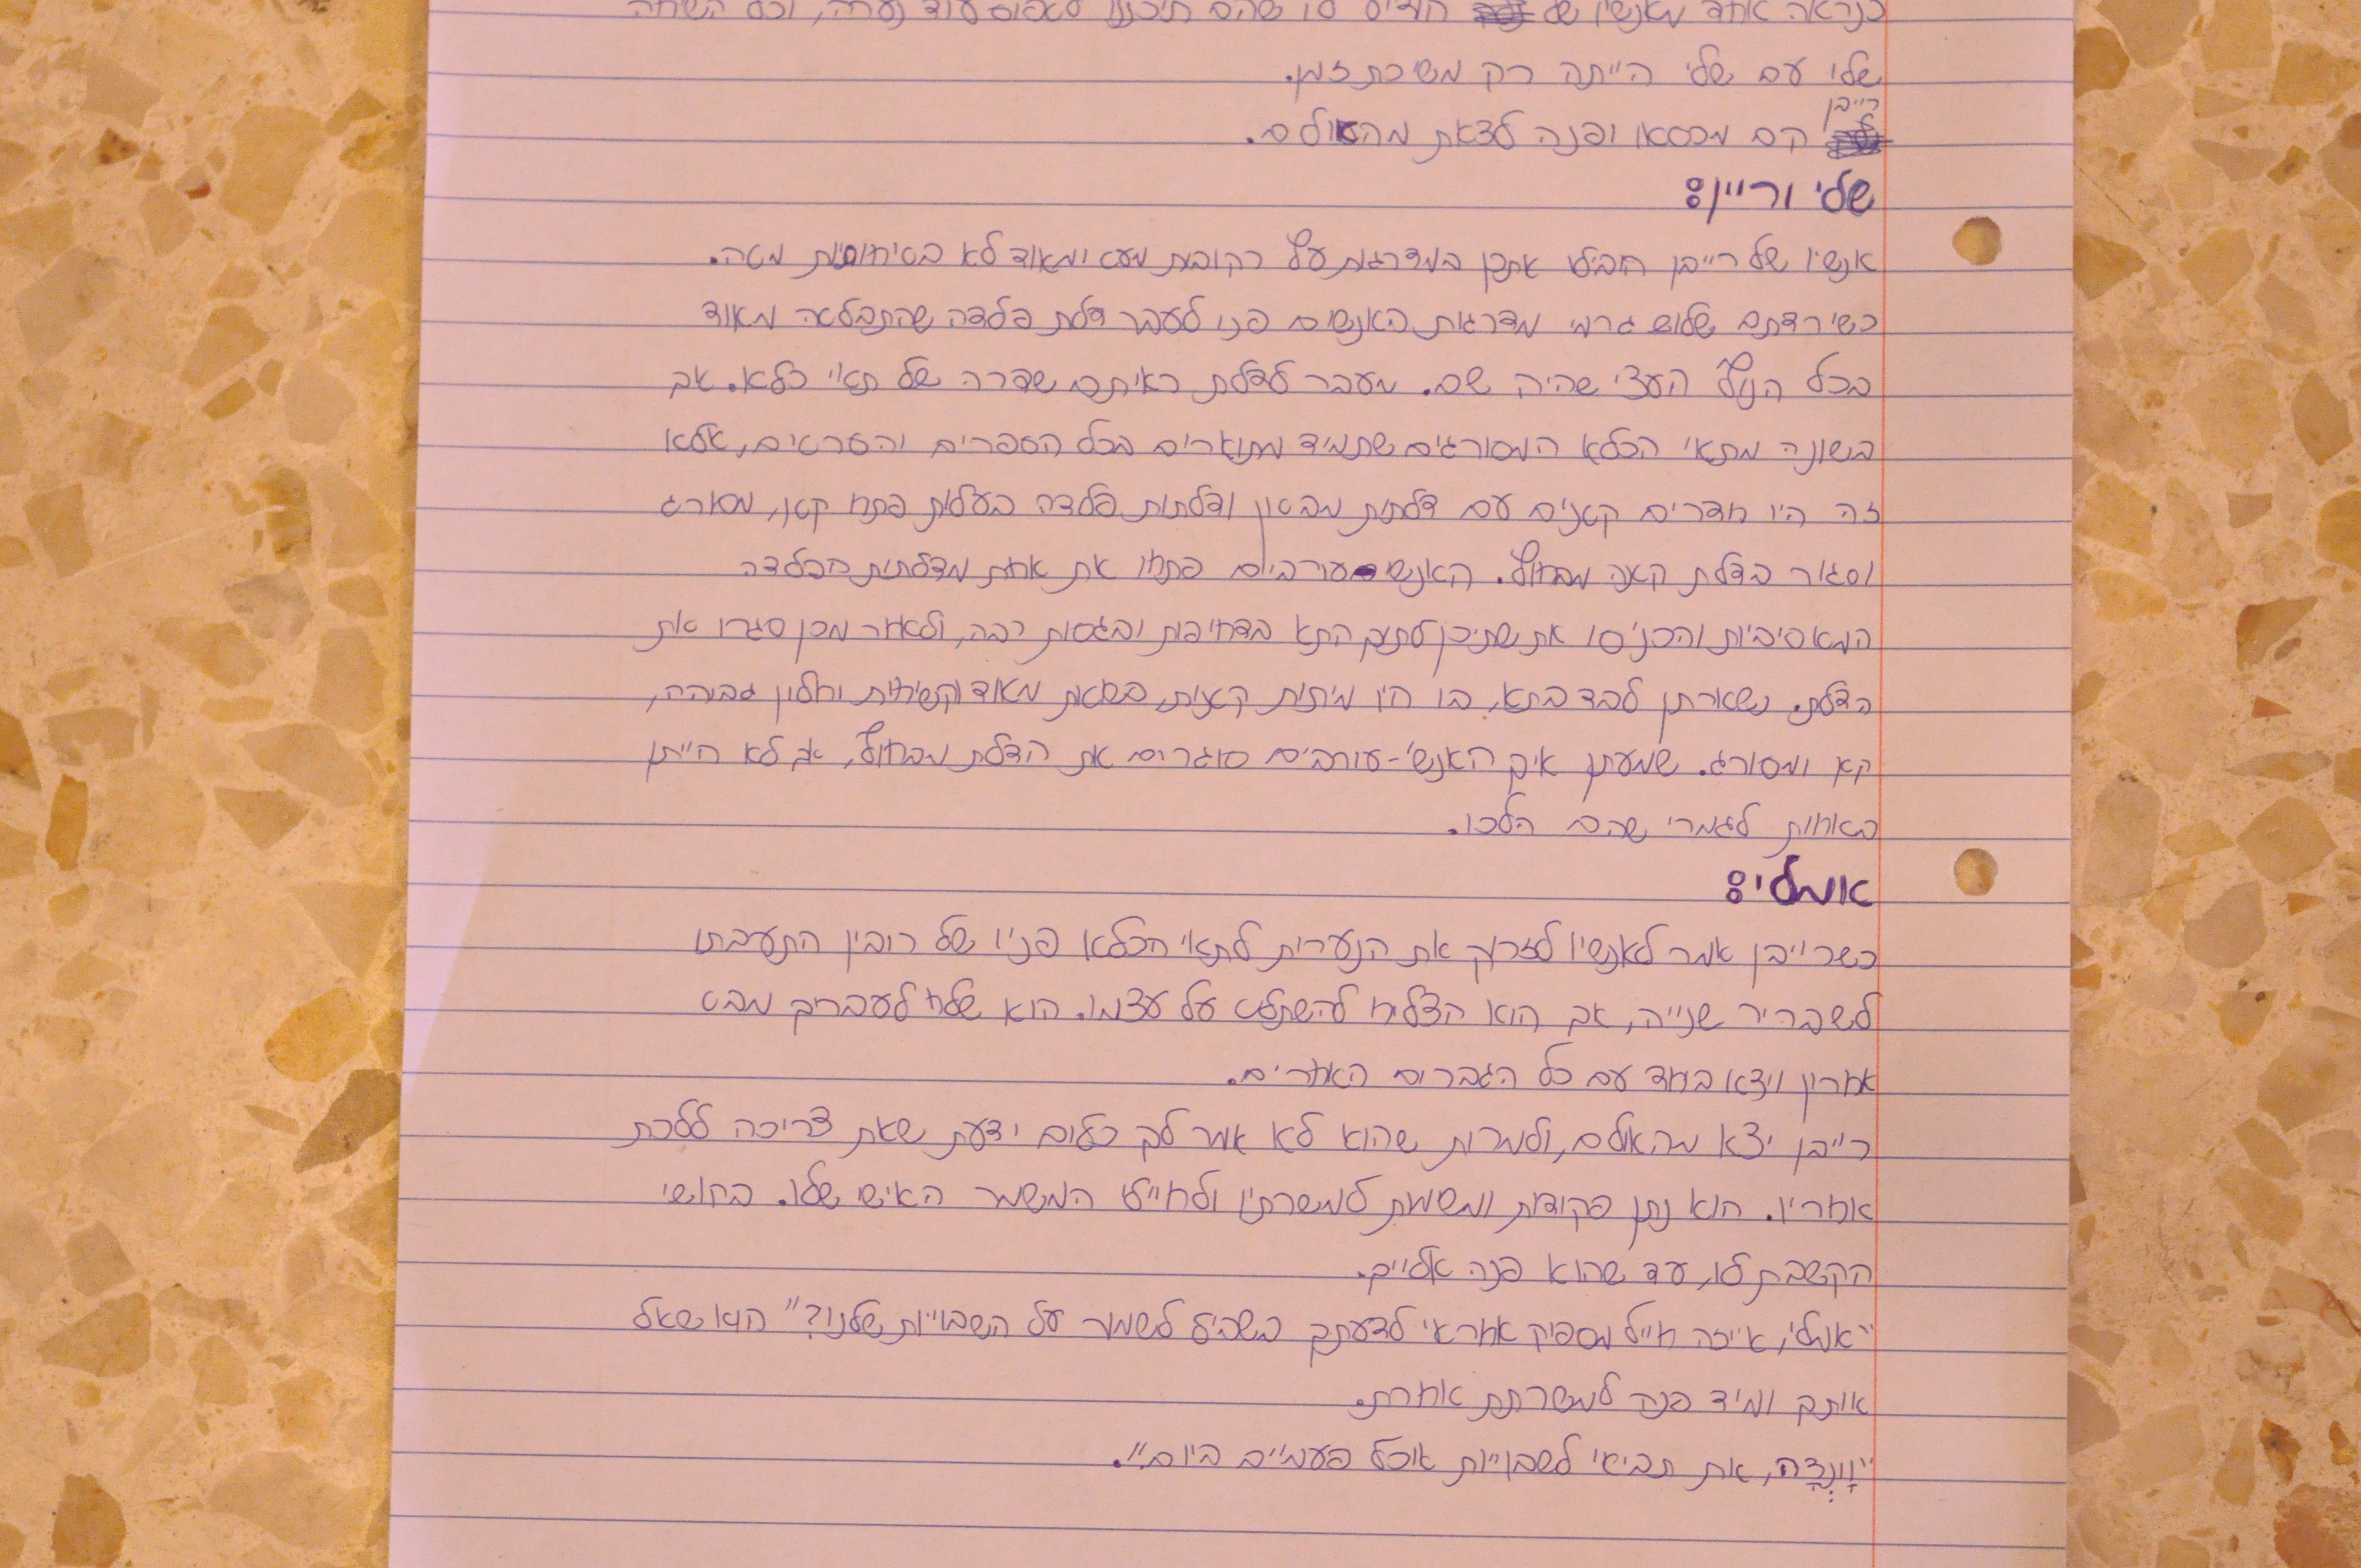 כנראה אחד מאנשיו של הודיע לו שהם תיכננו לאפוס עוד נערה, וכל השיחה
שלו עם שלי הייתה רק משיכת זמן.
רייבן
קם מכסאו ופנה לצאת מהאולם.
שלי וריין:
אנשיו של רייבן הובילו אתכן במדרגות עץ רקובות מעט ומאוד לא בטיחותיות מטה.
כשירדתם שלוש גרמי מדרגות האנשים פנו לעבר דלת פלדה שהתבלטה מאוד
בכל הנוף העצי שהיה שם. מעבר לדלת ראיתם שדרה של תאי כלא. אך
בשונה מתאי הכלא המסורגים שתמיד מתוארים בכל הספרים והסרטים, אלא
זה היו חדרים קטנים עם דלתות מבטון ודלתות פלדה בעלות פתח קטן, מסורג
וסגור בדלת קטנה מבחוץ. האנשי עורבים פתחו את אחת מדלתות הפלדה
המאסיביות והכניסו את שתיכן לתוך התא בדחיפות ובגסות רבה, ולאחר מכן סגרו את
הדלת. נשארתן לבד בתא, בו היו מיטות קטנות, פשוטות מאוד וקשיחות וחלון גבוהה,
קטן ומסורג. שמעתן איך האנשי-עורבים סוגרים את הדלת מבחוץ, אך לא הייתן
בטוחות לגמרי שהם הלכו.
אומלי:
כשרייבן אמר לאנשיו לזרוק את הנערות לתאי הכלא פניו של רובין התעבתו
לשבריר שנייה, אך הוא הצליח להשתלט על עצמו. הוא שלח לעברך מבט
אחרון ויצא ביחד עם כל הגברים האחרים.
רייבן יצא מהאולם, ולמרות שהוא לא אמר לך כלום ידעת שאת צריכה ללכת
אחריו. הוא נתן פקודות ומשימות למשרתיו ולחיילי המשמר האישי שלו. בחושי
הקשבת לו, עד שהוא פנה אלייך.
"אומלי, איזה חייל מספיק אחראי לדעתך בשביל לשמור על השבויות שלנו?" הוא שאל
אותך ומיד פנה למשרתת אחרת.
"וָונְדָה, את תביאי לשבויות אוכל פעמיים ביום".